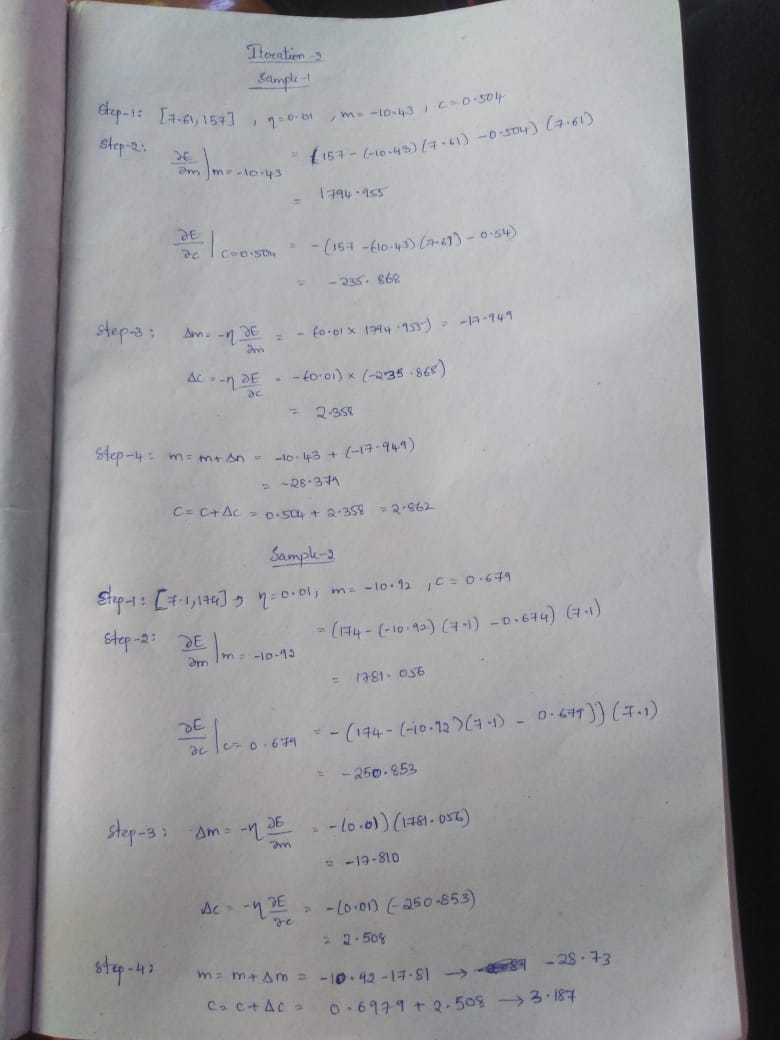 Iteration-2
Sample-1
Step-1: [7.61,157] , η=0.01 , m=-10.43 , c=0.504
Step-2: ∂E/∂m | m=-10.43 = (157-(-10.43)(7.61)-0.504)(7.61)
= 1794.955
∂E/∂c | c=0.504 = -(157-(-10.43)(7.61)-0.54)
= -235.868
Step-3: Δm=-η ∂E/∂m = -(0.01×1794.955) = -17.949
Δc=-η ∂E/∂c = -(0.01)×(-235.868)
= 2.358
Step-4: m=m+Δm = -10.43+(-17.949)
= -28.379
C=C+Δc = 0.504+2.358 = 2.862
Sample-2
Step-1: [7.1,174] , η=0.01, m=-10.92 , c=0.679
Step-2: ∂E/∂m | m=-10.92 = (174-(-10.92)(7.1)-0.674)(7.1)
= 1781.056
∂E/∂c | c=0.679 = -(174-(-10.92)(7.1)-0.679))(7.1)
= -250.853
Step-3: Δm=-η ∂E/∂m = -(0.01))(1781.056)
= -17.810
Δc=-η ∂E/∂c = -(0.01)(-250.853)
= 2.508
Step-4: m=m+Δm = -10.92-17.81 → -28.73
C=C+Δc = 0.6979+2.508 → 3.187